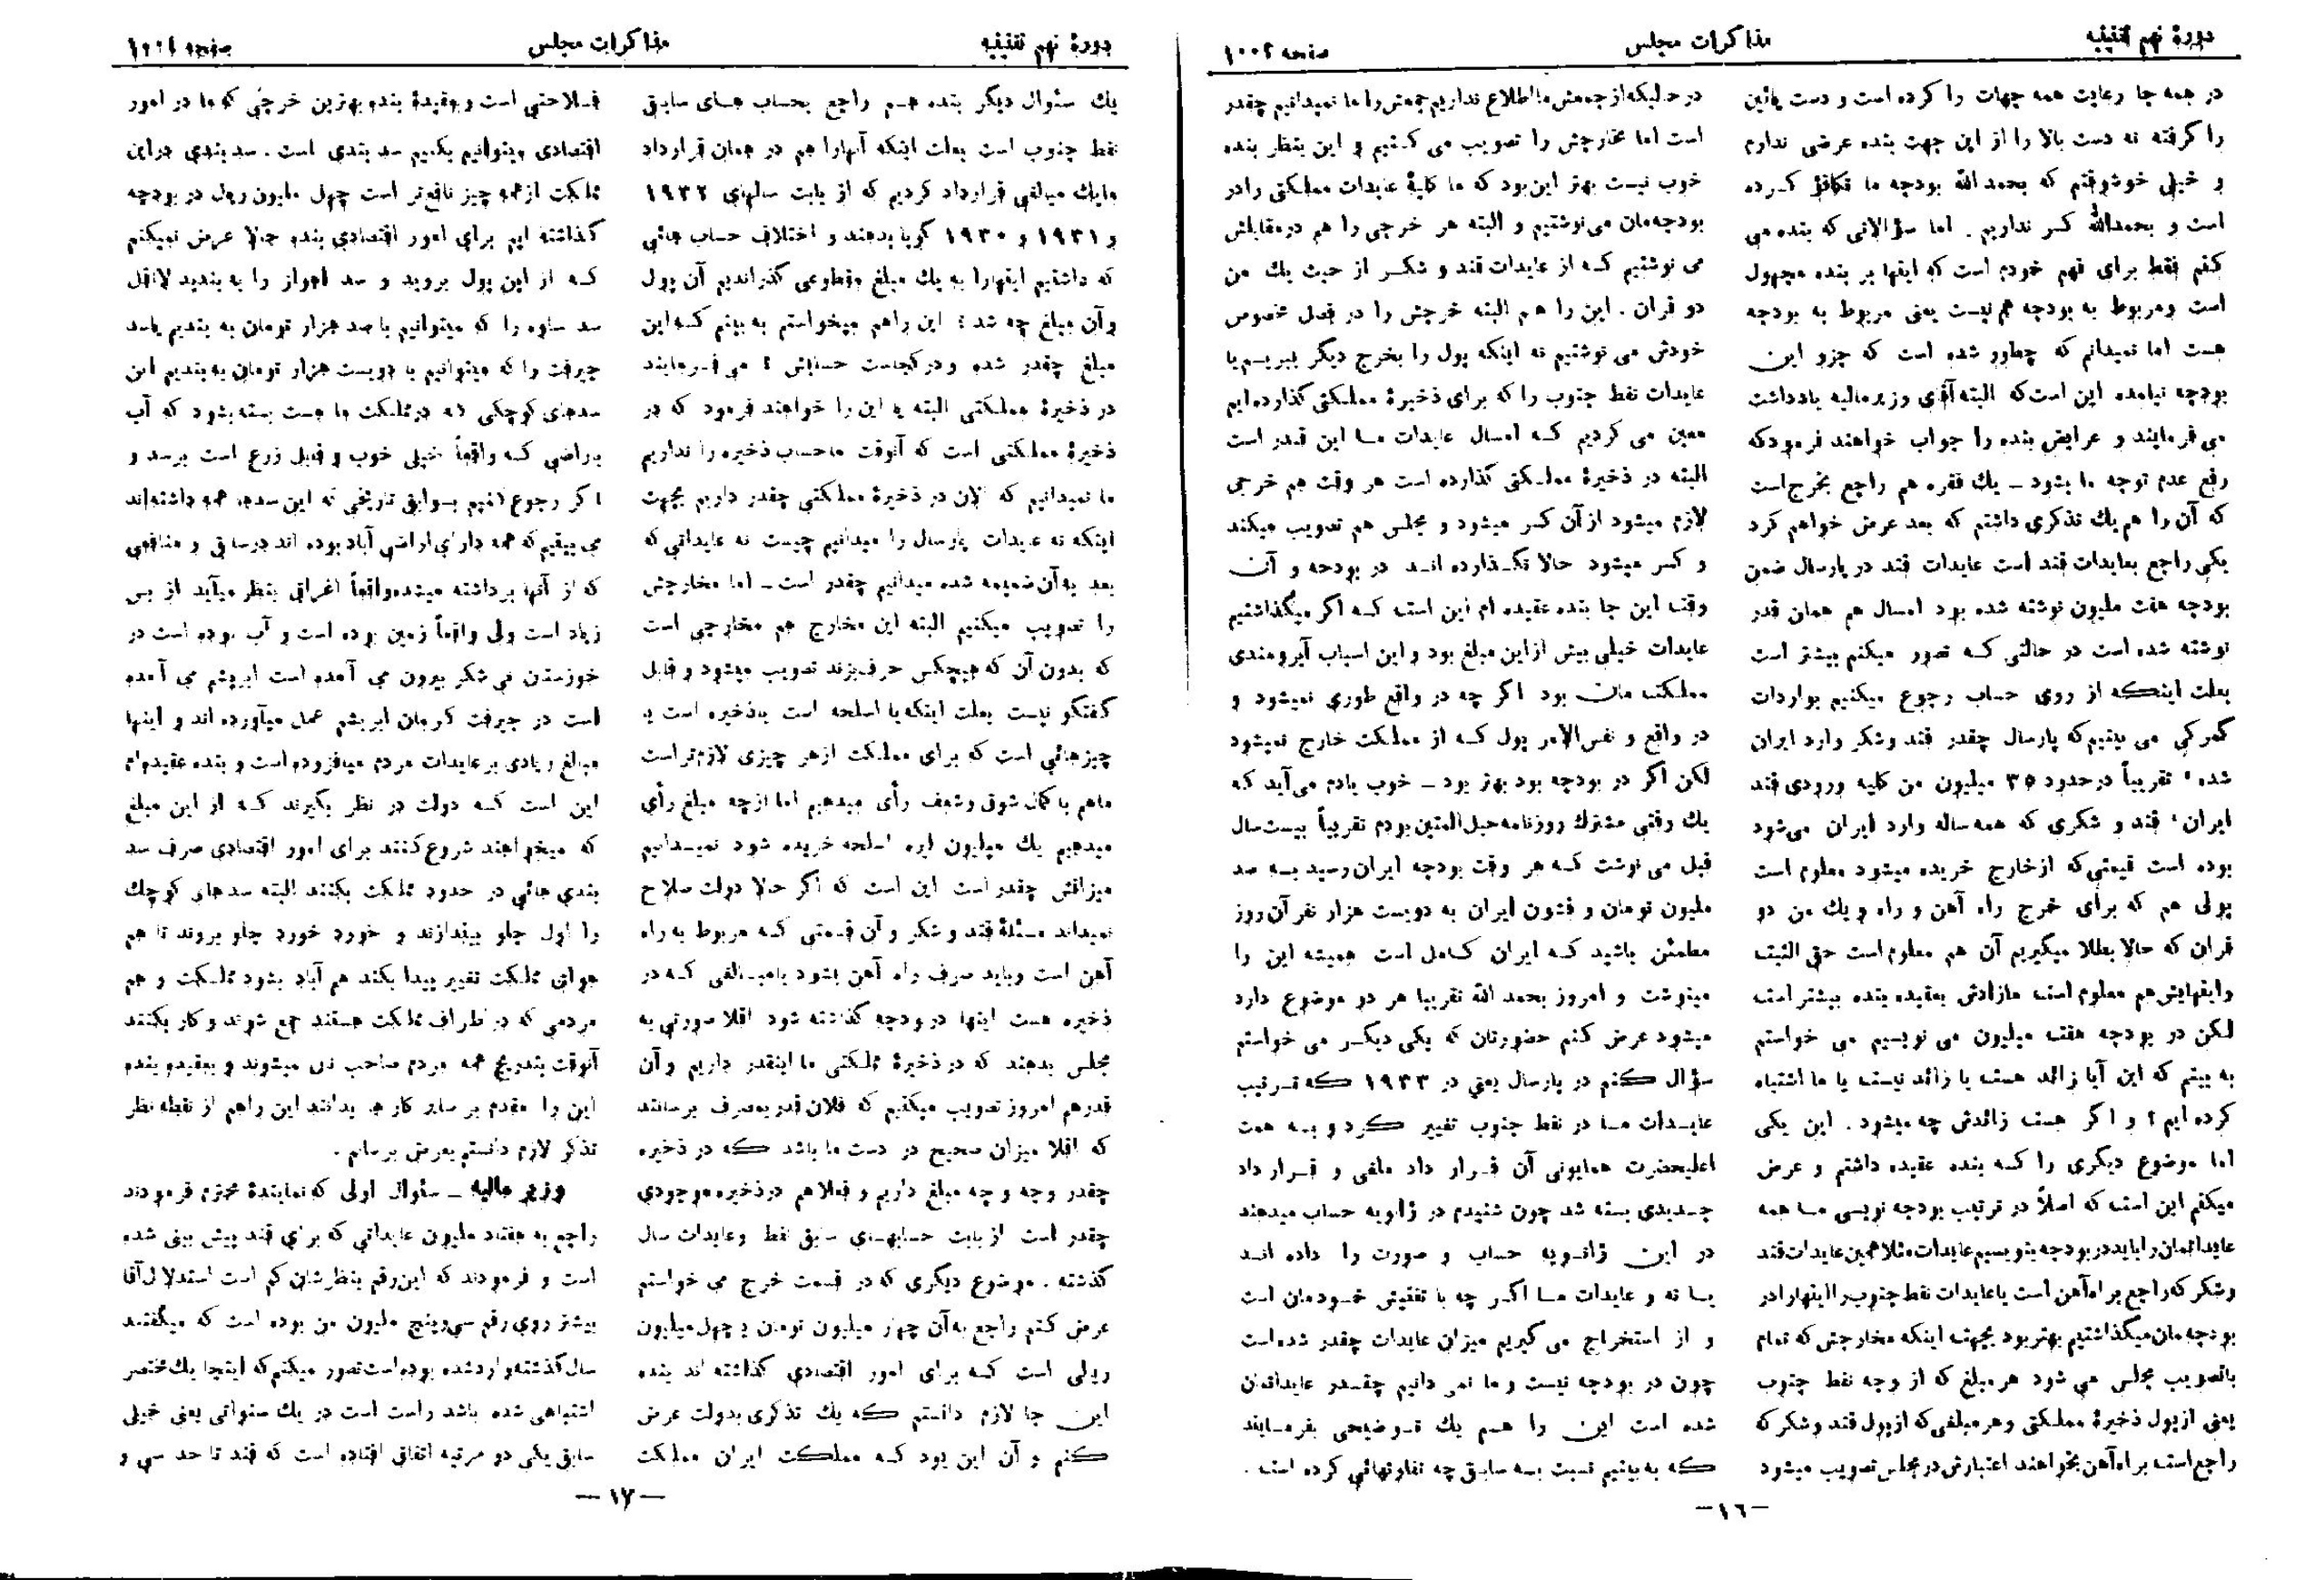 دورهٔ نهم تقنینیه
مذاکرات مجلس
صفحه ۱۰۰۲
در همه جا رعایت همه جهات را کرده است و دست پائین
را گرفته نه دست بالا را از این جهت بنده عرضی ندارم
و خیلی خوشوقتم که بحمدالله بودجه ما تکافؤ کرده
است و بحمدالله کسر نداریم . اما سؤالاتی که بنده می
کنم فقط برای فهم خودم است که اینها بر بنده مجهول
است ومربوط به بودجه هم نیست یعنی مربوط به بودجه
هست اما نمیدانم که چطور شده است که جزو این
بودجه نیامده این است که البته آقای وزیر مالیه یادداشت
می فرمایند و عرایض بنده را جواب خواهند فرمود که
رفع عدم توجه ما بشود - یك فقره هم راجع بخرج است
که آن را هم یك تذکری داشتم که بعد عرض خواهم کرد
یکی راجع بعایدات قند است عایدات قند در پارسال ضمن
بودجه هفت ملیون نوشته شده بود امسال هم همان قدر
نوشته شده است در حالتی که تصور میکنم بیشتر است
بعلت اینکه از روی حساب رجوع میکنیم بواردات
گمرکی می بینیم که پارسال چقدر قند وشکر وارد ایران
شده ، تقریباً در حدود ۳۵ میلیون من کلیه ورودی قند
ایران ، قند و شکری که همه ساله وارد ایران می شود
بوده است قیمتی که از خارج خریده میشود معلوم است
پولی هم که برای خرج راه آهن و راه و یك من دو
قران که حالا بطلا میگیریم آن هم معلوم است حق الثبت
واینهایش هم معلوم است مازادش بعقیده بنده بیشتر است
لکن در بودجه هفت میلیون می نویسیم می خواستم
به بینم که این آیا زائد هست یا زائد نیست یا ما اشتباه
کرده ایم ؟ و اگر هست زائدش چه میشود . این یکی
اما موضوع دیگری را که بنده عقیده داشتم و عرض
میکنم این است که اصلاً در ترتیب بودجه نویسی ما همه
عایداتمان را باید در بودجه بنویسیم عایدات مثلا همین عایدات قند
وشکر که راجع براه آهن است یا عایدات نفط جنوب را اینهارا در
بودجه مان میگذاشتیم بهتر بود بجهت اینکه مخارجش که تمام
باتصویب مجلس می شود هر مبلغ که از وجه نفط جنوب
یعنی از پول ذخیرهٔ مملکتی و هر مبلغی که از پول قند وشکر که
راجع است براه آهن بخواهند اعتبارش در مجلس تصویب میشود
در حالیکه از جمعش ما اطلاع نداریم جمعش را ما نمیدانیم چقدر
است اما مخارجش را تصویب می کنیم و این بنظر بنده
خوب نیست بهتر این بود که ما کلیهٔ عایدات مملکتی را در
بودجه مان می نوشتیم و البته هر خرجی را هم در مقابلش
می نوشتیم که از عایدات قند و شکر از حیث یك من
دو قران . این را هم البته خرجش را در فصل مخصوص
خودش می نوشتیم نه اینکه پول را بخرج دیگر ببریم یا
عایدات نفط جنوب را که برای ذخیرهٔ مملکتی گذارده ایم
معین می کردیم که امسال عایدات ما این قدر است
البته در ذخیرهٔ مملکتی گذارده است هر وقت هم خرجی
لازم میشود از آن کسر میشود و مجلس هم تصویب میکند
و کسر میشود حالا نگذارده اند در بودجه و آن
وقت این جا بنده عقیده ام این است که اگر میگذاشتیم
عایدات خیلی بیش از این مبلغ بود و این اسباب آبرومندی
مملکت مان بود اگر چه در واقع طوری نمیشود و
در واقع و نفس الامر پول که از مملکت خارج نمیشود
لکن اگر در بودجه بود بهتر بود - خوب یادم می آید که
یك وقتی مشترك روزنامه حبل المتین بودم تقریباً بیست سال
قبل می نوشت که هر وقت بودجه ایران رسید به صد
ملیون تومان و قشون ایران به دویست هزار نفر آن روز
مطمئن باشید که ایران کامل است همیشه این را
مینوشت و امروز بحمد الله تقریبا هر دو موضوع دارد
میشود عرض کنم حضورتان که یکی دیگر می خواستم
سؤال کنم در پارسال یعنی در ۱۹۳۳ که ترتیب
عایدات ما در نفط جنوب تغییر کرد و به همت
اعلیحضرت همایونی آن قرار داد ملغی و قرار داد
جدیدی بسته شد چون شنیدم در ژانویه حساب میدهند
در این ژانویه حساب و صورت را داده اند
یا نه و عایدات ما اگر چه با تفتیش خودمان است
و از استخراج می گیریم میزان عایدات چقدر شده است
چون در بودجه نیست و ما نمی دانیم چقدر عایداتمان
شده است این را هم یك توضیحی بفرمایند
که به بینیم نسبت به سابق چه تفاوتهائی کرده است .
-۱۶-
دورهٔ نهم تقنینیه
مذاکرات مجلس
صفحه
یك سئوال دیگر بنده هم راجع بحساب های سابق
نفط جنوب است بعلت اینکه آنهارا هم در همان قرارداد
مایك مبالغی قرارداد کردیم که از بابت سالهای ۱۹۳۲
و ۱۹۳۱ و ۱۹۳۰ گویا بدهند و اختلاف حساب هائی
که داشتیم اینهارا به یك مبلغ مقطوعی گذراندیم آن پول
و آن مبلغ چه شد ؟ این راهم میخواستم به بینم که این
مبلغ چقدر شده و در کجاست حسابش ؟ می فرمایند
در ذخیرهٔ مملکتی البته این را خواهند فرمود که در
ذخیرهٔ مملکتی است که آنوقت ما حساب ذخیره را نداریم
ما نمیدانیم که الان در ذخیرهٔ مملکتی چقدر داریم بجهت
اینکه نه عایدات پارسال را میدانیم چیست نه عایداتی که
بعد به آن ضمیمه شده میدانیم چقدر است - اما مخارجش
را تصویب میکنیم البته این مخارج هم مخارجی است
که بدون آن که هیچکس حرف بزند تصویب میشود و قابل
گفتگو نیست بعلت اینکه یا اسلحه است یا ذخیره است یا
چیزهائی است که برای مملکت از هر چیزی لازم تر است
ماهم با کمال شوق و شعف رأی میدهیم اما از چه مبلغ رأی
میدهیم یك میلیون لیره اسلحه خریده شود نمیدانیم
میزانش چقدر است این است که اگر حالا دولت صلاح
نمیداند مسئلهٔ قند و شکر و آن قسمتی که مربوط به راه
آهن است وباید صرف راه آهن بشود یا مبالغی که در
ذخیره هست اینها در بودجه گذاشته شود اقلا صورتی به
مجلس بدهند که در ذخیرهٔ مملکتی ما اینقدر داریم و آن
قدر هم امروز تصویب میکنیم که فلان قدر بمصرف برسانند
که اقلا میزان صحیح در دست ما باشد که در ذخیره
چقدر وجه و چه مبلغ داریم و فعلا هم در ذخیره موجودی
چقدر است از بابت حسابهای سابق نفط وعایدات سال
گذشته . موضوع دیگری که در قسمت خرج می خواستم
عرض کنم راجع به آن چهار میلیون تومان یا چهل میلیون
ریالی است که برای امور اقتصادی گذاشته اند بنده
این جا لازم دانستم که یك تذکری بدولت عرض
کنم و آن این بود که مملکت ایران مملکت
فلاحتی است و بعقیدهٔ بنده بهترین خرجی که ما در امور
اقتصادی میتوانیم بکنیم سد بندی است . سد بندی در این
مملکت از همه چیز نافع تر است چهل ملیون ریال در بودجه
گذاشته ایم برای امور اقتصادی بنده حالا عرض نمیکنم
که از این پول بروید و سد اهواز را به بندید لااقل
سد ساوه را که میتوانیم با صد هزار تومان به بندیم یا سد
جیرفت را که میتوانیم با دویست هزار تومان به بندیم این
سدهای کوچکی که در مملکت ما هست بسته بشود که آب
باراضی که واقعاً خیلی خوب و قابل زرع است برسد و
اگر رجوع کنیم بسوابق تاریخی که این سدها همه داشته اند
می بینیم که همه دارای اراضی آباد بوده اند در سابق و منافعی
که از آنها برداشته میشده واقعاً اغراق بنظر میآید از بس
زیاد است ولی واقعاً زمین بوده است و آب بوده است در
خوزستان نی شکر بیرون می آمده است ابریشم می آمده
است در جیرفت کرمان ابریشم عمل میآورده اند و اینها
مبالغ زیادی بر عایدات مردم میافزوده است و بنده عقیده ام
این است که دولت در نظر بگیرند که از این مبلغ
که میخواهند شروع کنند برای امور اقتصادی صرف سد
بندی هائی در حدود مملکت بکنند البته سدهای کوچك
را اول جلو بیندازند و خورد خورد جلو بروند تا هم
هوای مملکت تغییر پیدا بکند هم آباد بشود مملکت و هم
مردمی که در اطراف مملکت هستند جمع شوند و کار بکنند
آنوقت بتدریج همه مردم صاحب نان میشوند و بعقیده بنده
این را مقدم بر سایر کارها بدانند این راهم از نقطه نظر
تذکر لازم دانستم بعرض برسانم .
وزیر مالیه - سئوال اولی که نمایندهٔ محترم فرمودند
راجع به هفتاد ملیون عایداتی که برای قند پیش بینی شده
است و فرمودند که این رقم بنظرشان کم است استدلال آقا
بیشتر روی رقم سی وپنج ملیون من بوده است که میگفتند
سال گذشته وارد شده بوده است تصور میکنم که اینجا یك مختصر
اشتباهی شده باشد راست است در یك سنواتی یعنی خیلی
سابق یکی دو مرتبه اتفاق افتاده است که قند تا حد سی و
-۱۷-